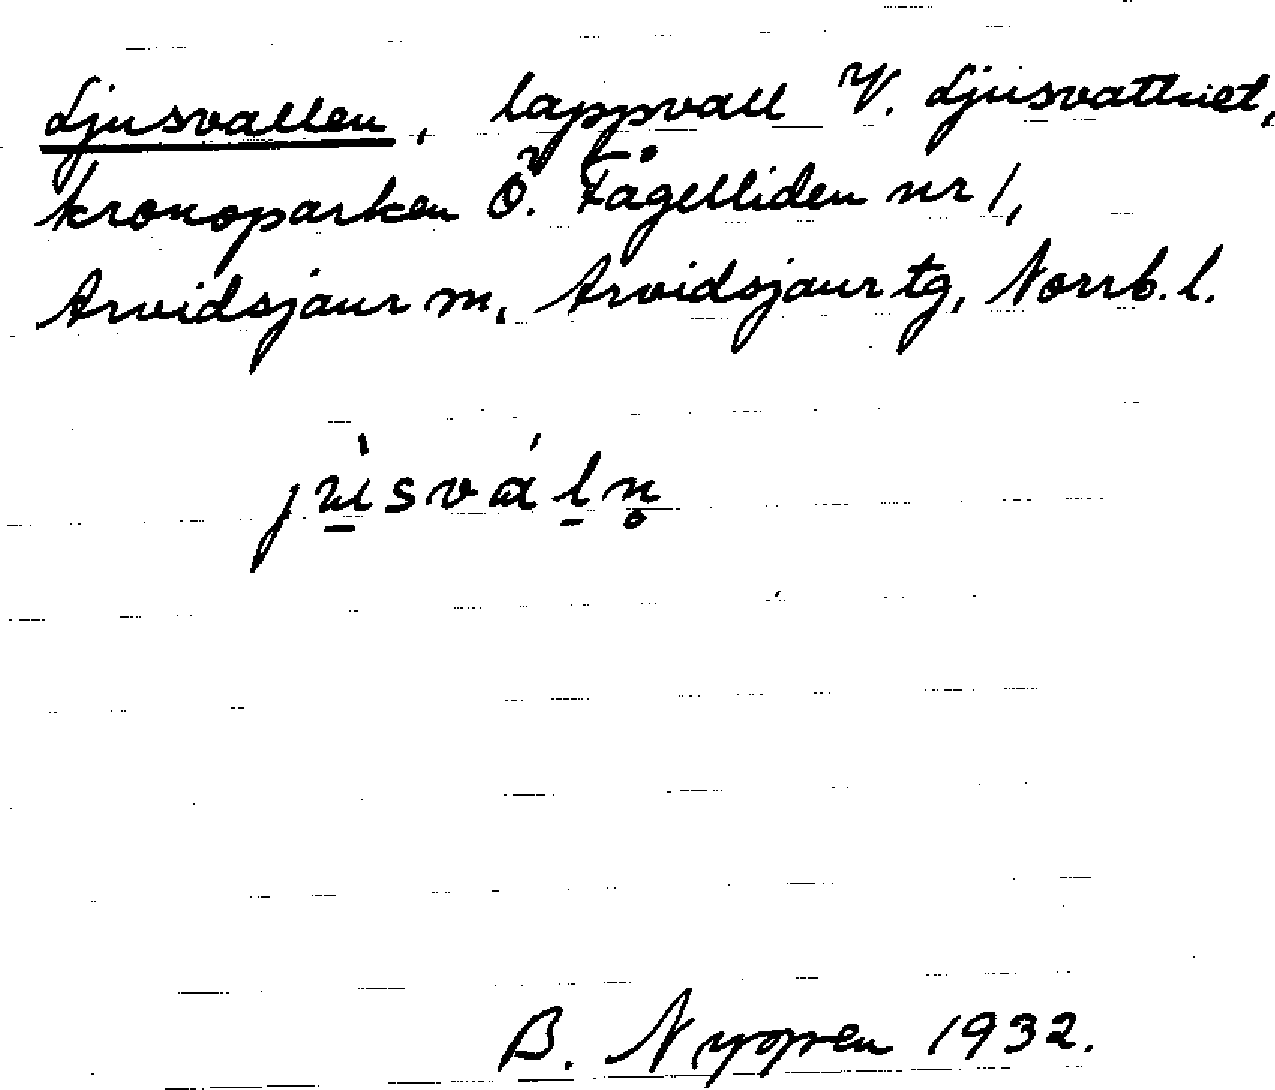 Ljusvallen, lappvall V. Ljusvattnet,
kronoparken Ö. Fågelliden nr 1,
Arvidsjaur m, Arvidsjaur tg, Norrb. l.
B. Nyopen 1932.